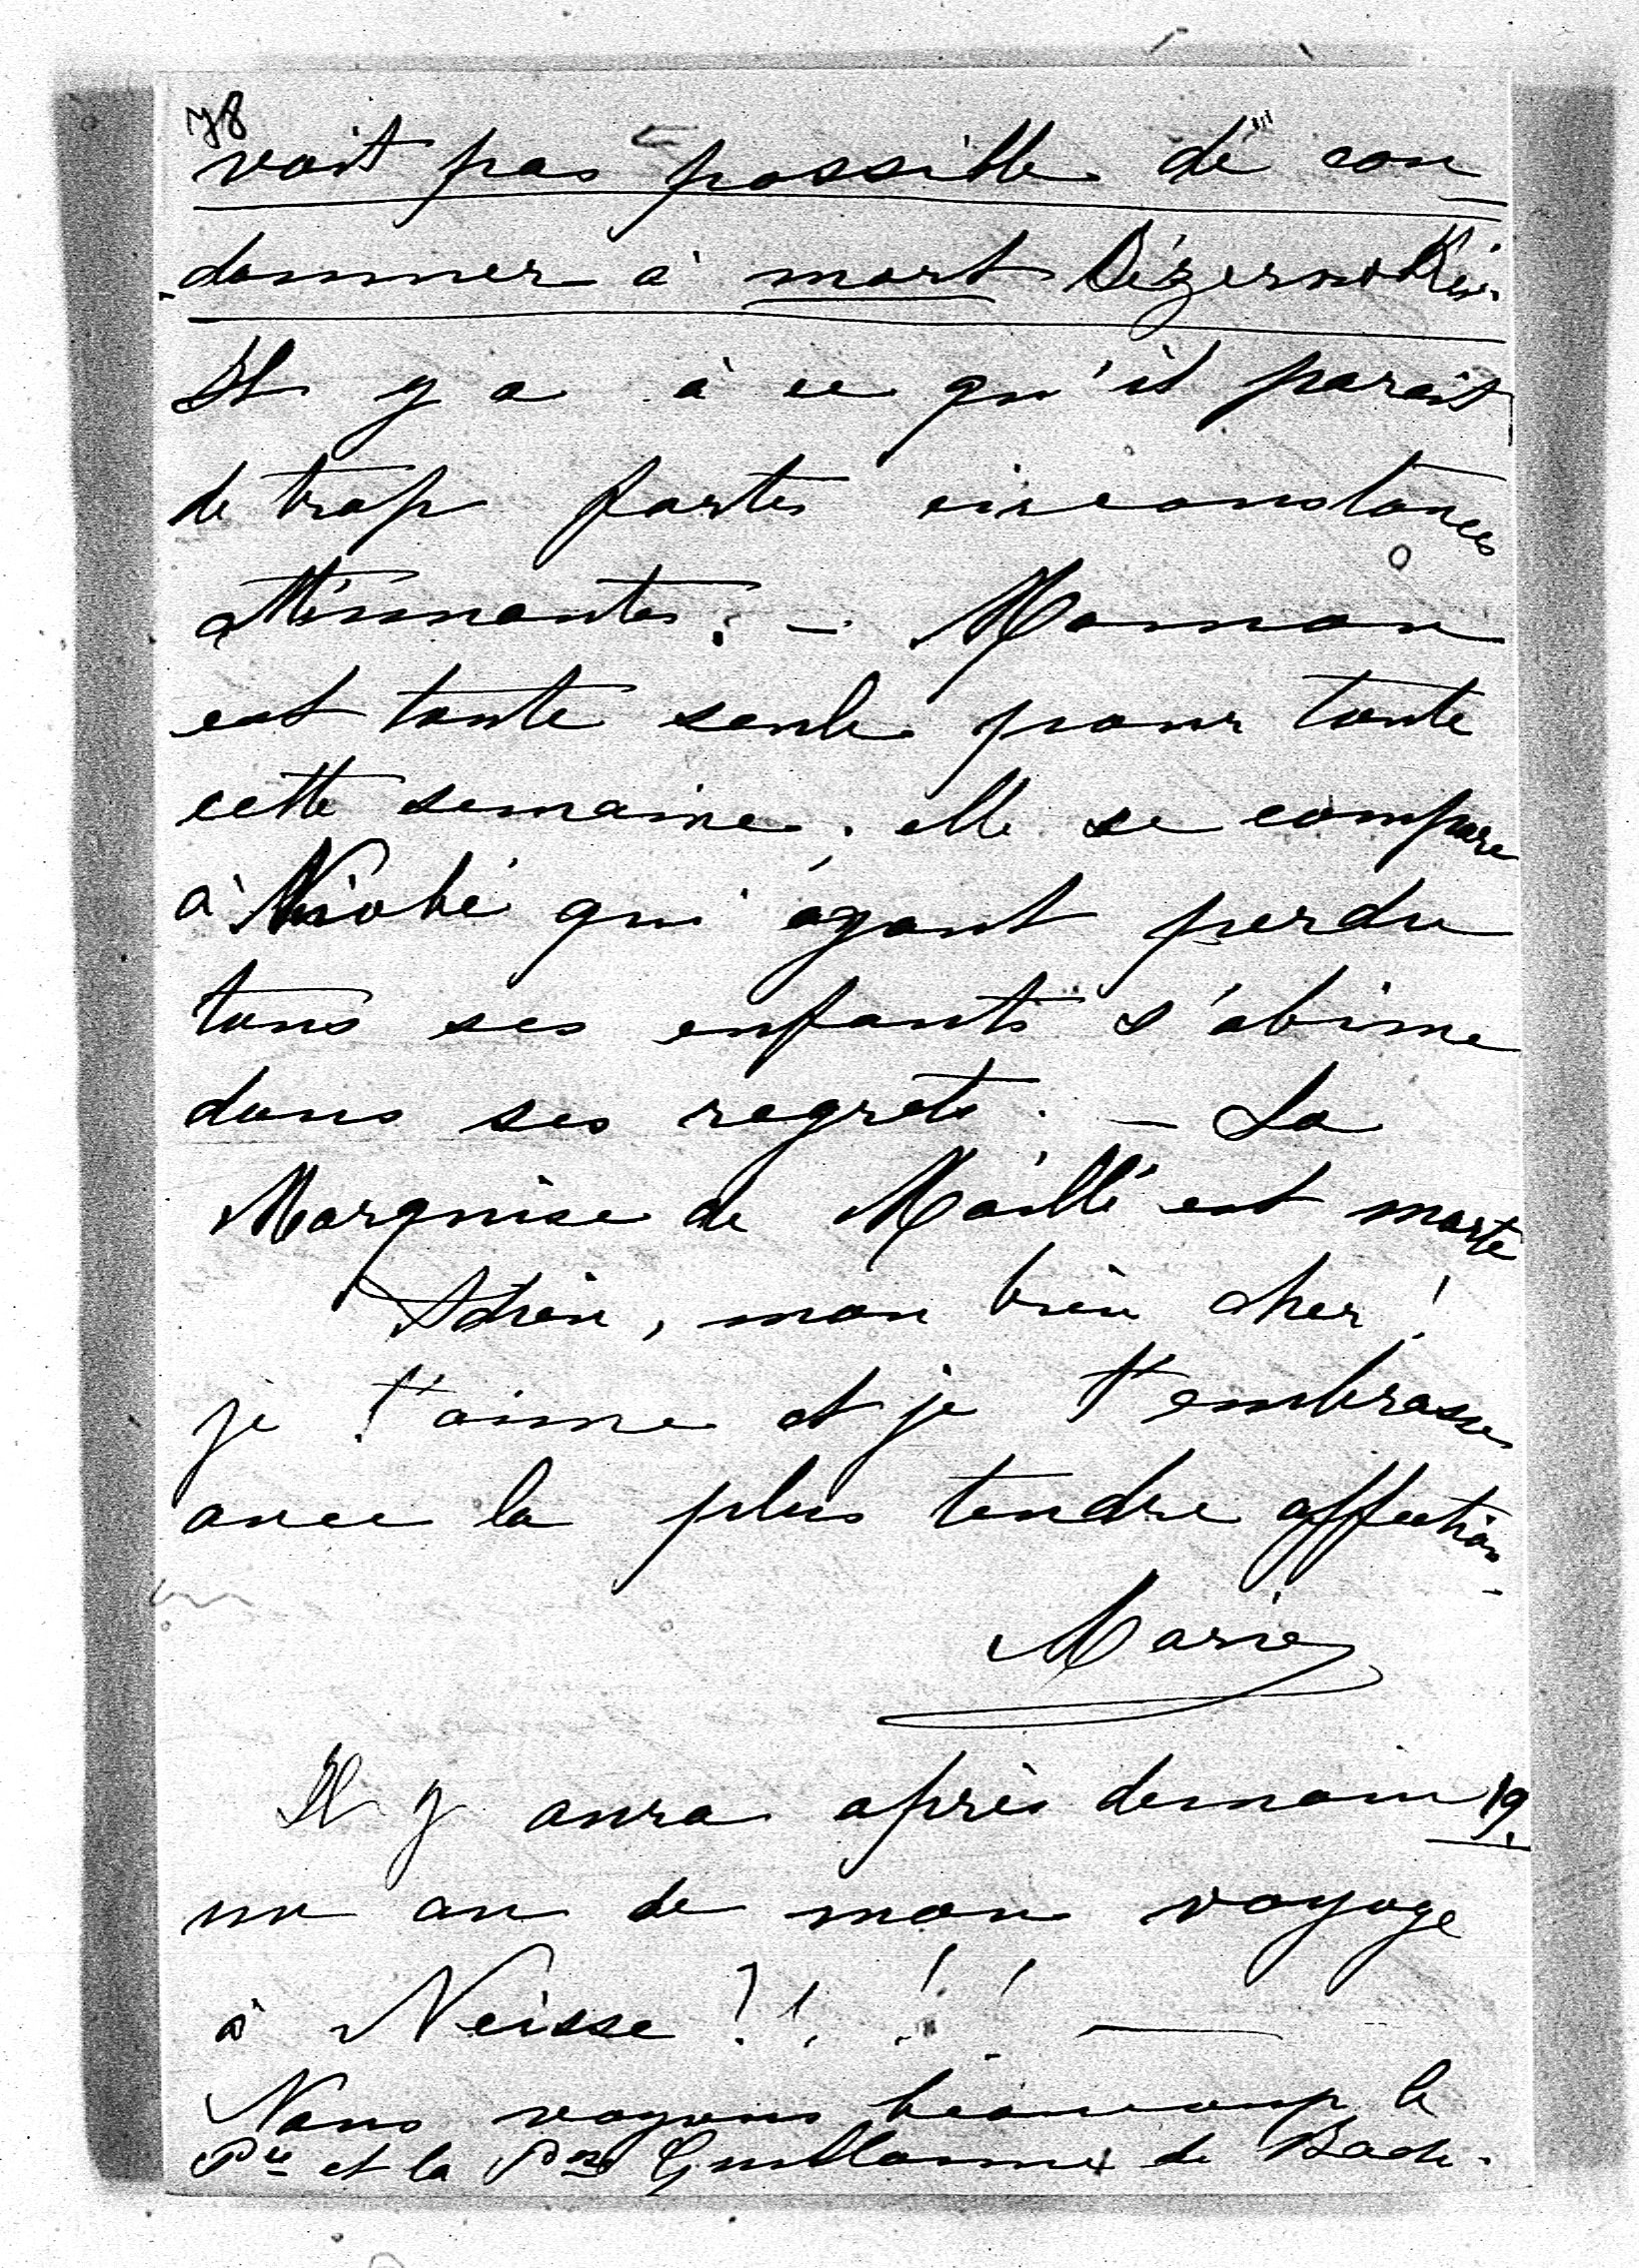 78
voit pas possible de con
damner à mort Bézerowski.
Il y a à ce qu'il paraît
de trop fortes circonstances
atténuantes. — Maman
est toute seule pour toute
cette semaine. elle se compare
à Niobé qui ayant perdu
tous ses enfants s'abime
dans ses regrets. — La
Marquise de Maillé est morte
Adieu, mon bien cher!
je t'aime et je t'embrasse
avec la plus tendre affection -
Marie
Il y aura après demain 19.
un an de mon voyage
à Neisse!!!! —
Nous voyons beaucoup le
Pce et la Psse Guillaume de Bade.